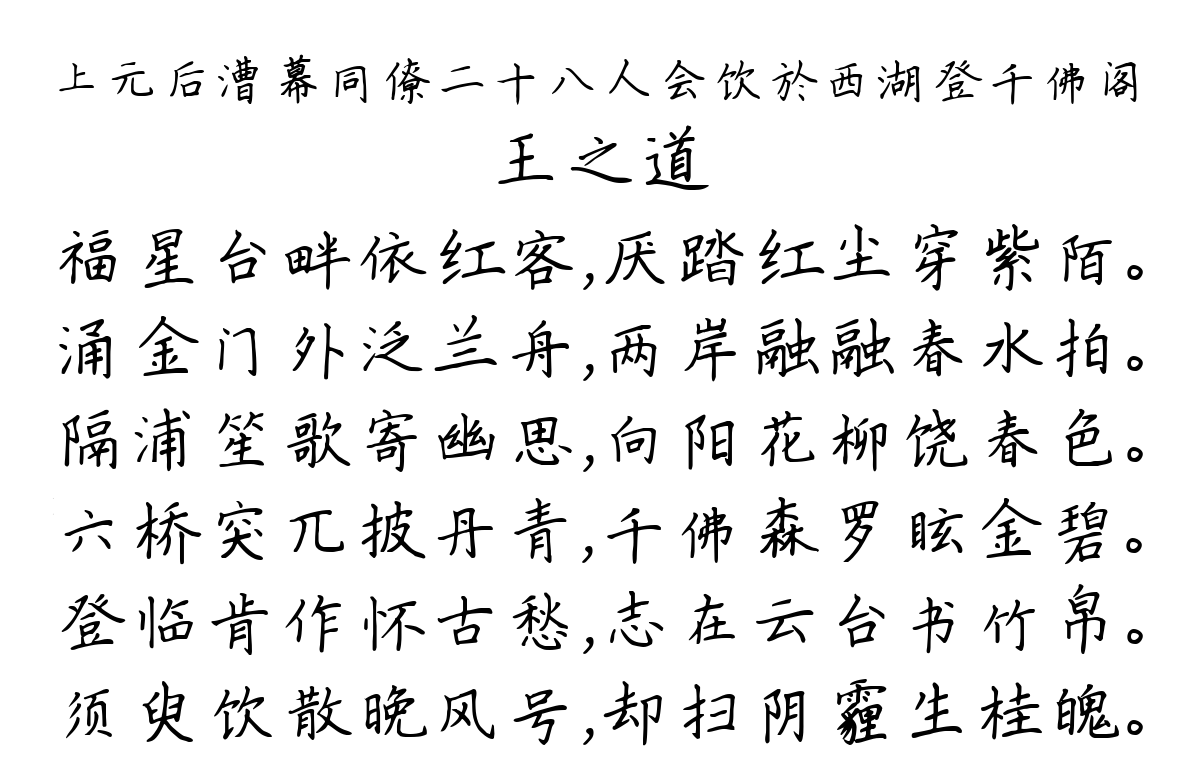 上元后漕幕同僚二十八人会饮於西湖登千佛阁
王之道
福星台畔依红客,厌踏红尘穿紫陌。
涌金门外泛兰舟,两岸融融春水拍。
隔浦笙歌寄幽思,向阳花柳饶春色。
六桥突兀披丹青,千佛森罗眩金碧。
登临肯作怀古愁,志在云台书竹帛。
须臾饮散晚风号,却扫阴霾生桂魄。